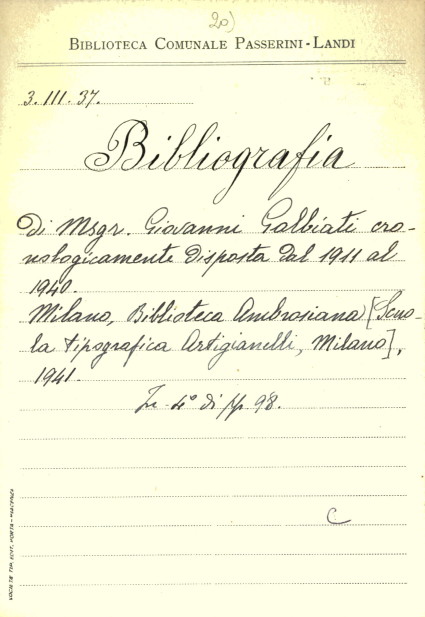 20)
BIBLIOTECA COMUNALE PASSERINI-LANDI
3.III.37.
Bibliografia
Di Msgr. Giovanni Galbiati cro-
nologicamente disposta dal 1911 al
1940.
Milano, Biblioteca Ambrosiana [Scuo-
la tipografica Artigianelli, Milano],
1941.
In 4° di pp 98.
C